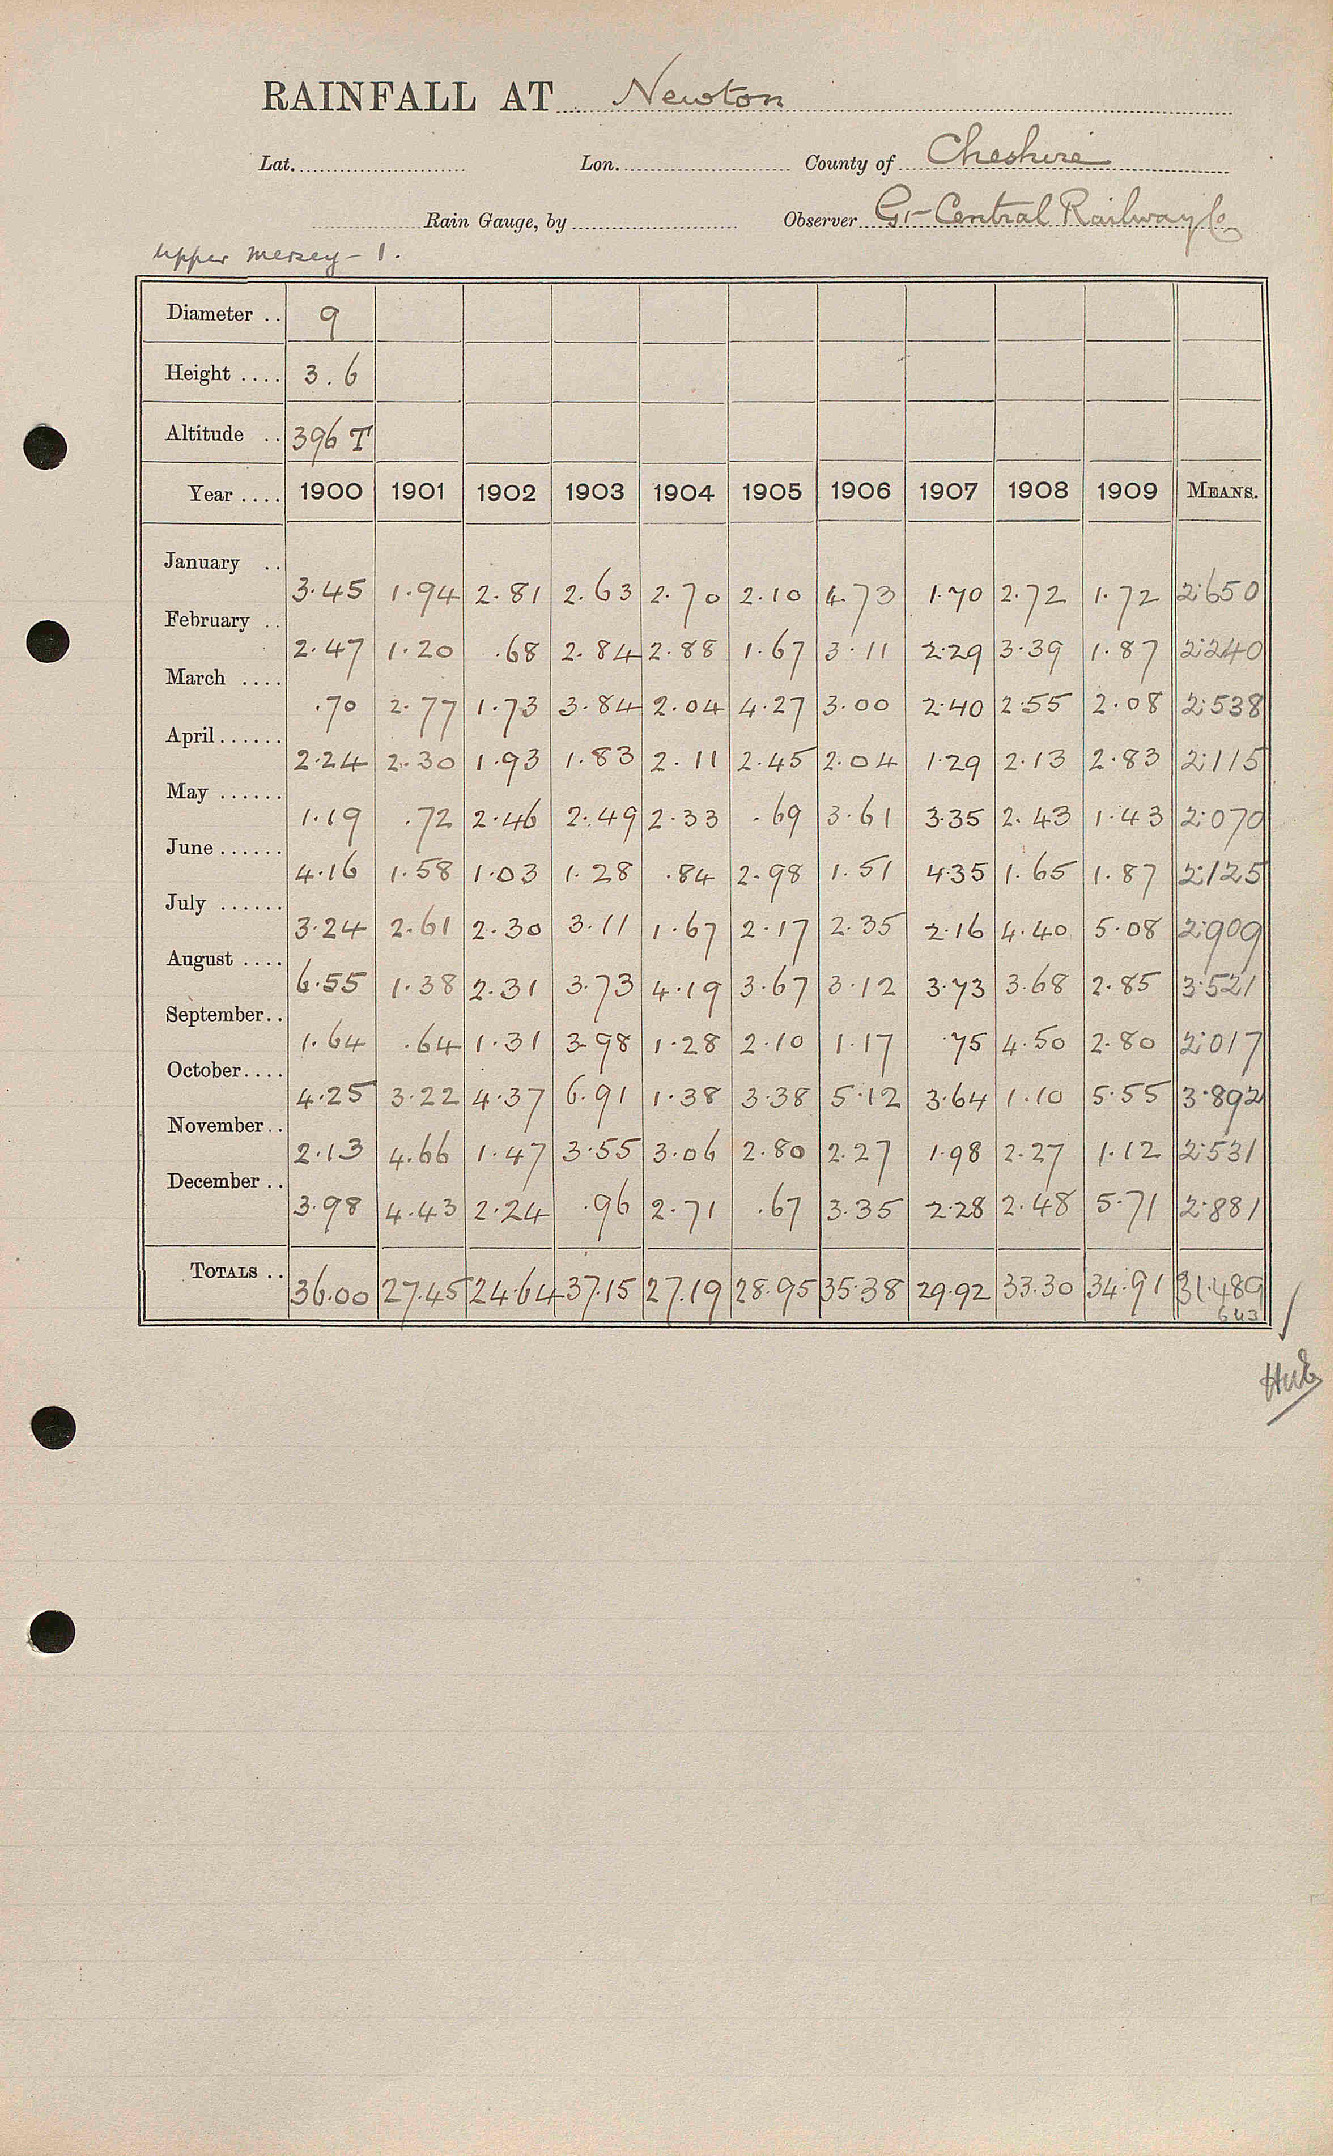 RAINFALL AT Newton
Lat. Lon. County of Cheshire
Rain Gauge, by Observer Gt Central Railway Co
Upper Mersey - 1.
Diameter .. 9
Height .... 3.6
Altitude .. 396 T
Year .... 1900 1901 1902 1903 1904 1905 1906 1907 1908 1909 MEANS.
January .. 3.45 1.94 2.81 2.63 2.70 2.10 4.73 1.70 2.72 1.72 2.650
February .. 2.47 1.20 .68 2.84 2.88 1.67 3.11 2.29 3.39 1.87 2.240
March .... .70 2.77 1.73 3.84 2.04 4.27 3.00 2.40 2.55 2.08 2.538
April ...... 2.24 2.30 1.93 1.83 2.11 2.45 2.04 1.29 2.13 2.83 2.115
May ...... 1.19 .72 2.46 2.49 2.33 .69 3.61 3.35 2.43 1.43 2.070
June ...... 4.16 1.58 1.03 1.28 .84 2.98 1.51 4.35 1.65 1.87 2.125
July ...... 3.24 2.61 2.30 3.11 1.67 2.17 2.35 2.16 4.40 5.08 2.909
August .... 6.55 1.38 2.31 3.73 4.19 3.67 3.12 3.73 3.68 2.85 3.521
September .. 1.64 .64 1.31 3.98 1.28 2.10 1.17 .75 4.50 2.80 2.017
October .... 4.25 3.22 4.37 6.91 1.38 3.38 5.12 3.64 1.10 5.55 3.892
November .. 2.13 4.66 1.47 3.55 3.06 2.80 2.27 1.98 2.27 1.12 2.531
December .. 3.98 4.43 2.24 .96 2.71 .67 3.35 2.28 2.48 5.71 2.881
TOTALS .. 36.00 27.45 24.64 37.15 27.19 28.95 35.38 29.92 33.30 34.91 31.489